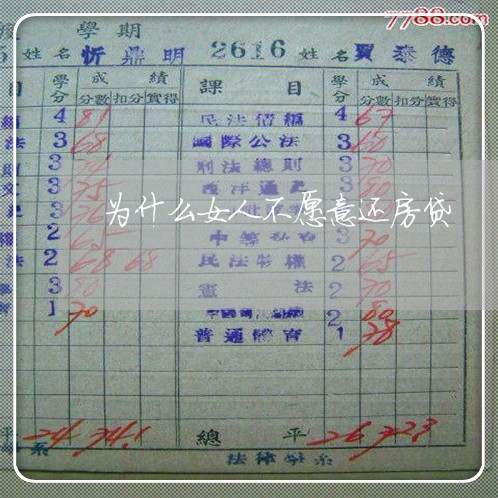 7788.com
學期
5 姓名 忻鼎明 2616 姓名 賈泰德
目 學分 成績 課目 學分 成績
分數 扣分 實得 分數 扣分 實得
4 81 民法債編 4 67
法 3 68 國際公法 3 60
3 刑法總則 3 70
3 75 西洋通史 3 80
为什么女人不愿意还房贷
2 65 3 70
法 2 68 68 民法物權 2 65
3 80 憲法 2 70
1 70 2 80
普通體育 1 78
平 24 74.1 總平 26 72.3
系 法律學系